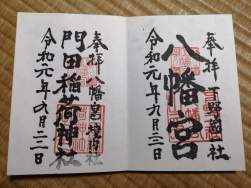 奉拝 下野國一社
八幡宮
令和元年九月
奉拝 八幡宮境内社
門田稲荷神社
令和元年九月